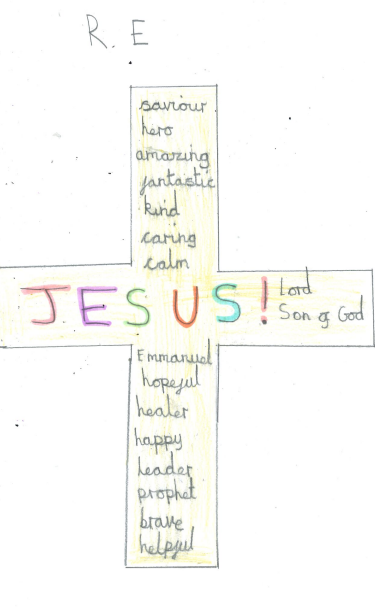 R. E
saviour
hero
amazing
fantastic
kind
caring
calm
JESUS!
Lord
Son of God
Emmanuel
hopeful
healer
happy
leader
prophet
brave
helpful